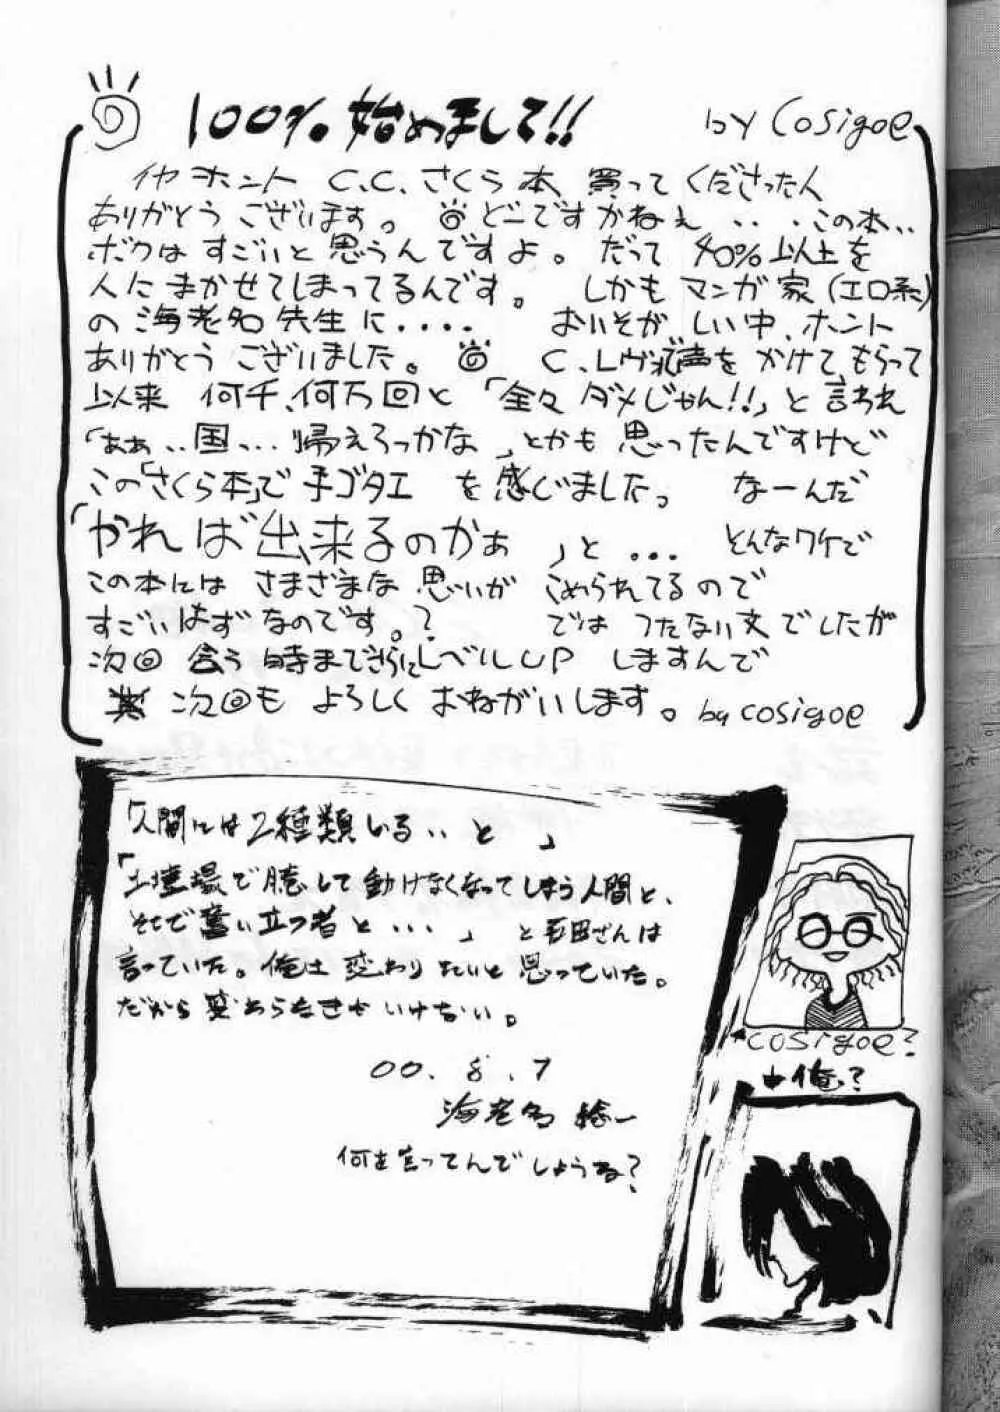 100%始めまして!!
by Cosigoe
イヤホント C.C.さくら本、買ってくださった人
ありがとうございます。どーですかねぇ...この本..
ボクはすごいと思うんですよ。だって40%以上を
人にまかせてしまってるんです。しかもマンガ家(エロ系)
の海老名先生に.... おいそがしい中、ホント
ありがとうございました。 C.レヴォで声をかけてもらって
以来 何千、何万回と「全々ダメじゃん!!」と言われ
「あぁ..国...帰えろっかな」とかも思ったんですけど
この「さくら本」で手ゴタエを感じましたっ なーんだ
「やれば出来るのかぁ」と... とんなワケで
この本には さまざまな思いが こめられてるので
すごいはずなのです。? では つたない文でしたが
次回 会う時までさらにレベルUP しますんで
次回も よろしくおねがいします。by cosigoe
「人間には2種類いる..と」
「土壇場で臆して動けなくなってしまう人間と、
そこで奮い立つ者と...」 と石田さんは
言っていた。俺は変わりたいと思っていた。
だから変わらなきゃいけない。
00.8.7
海老名 稔一
何を言ってんでしょうね?
cosigoe?
俺?